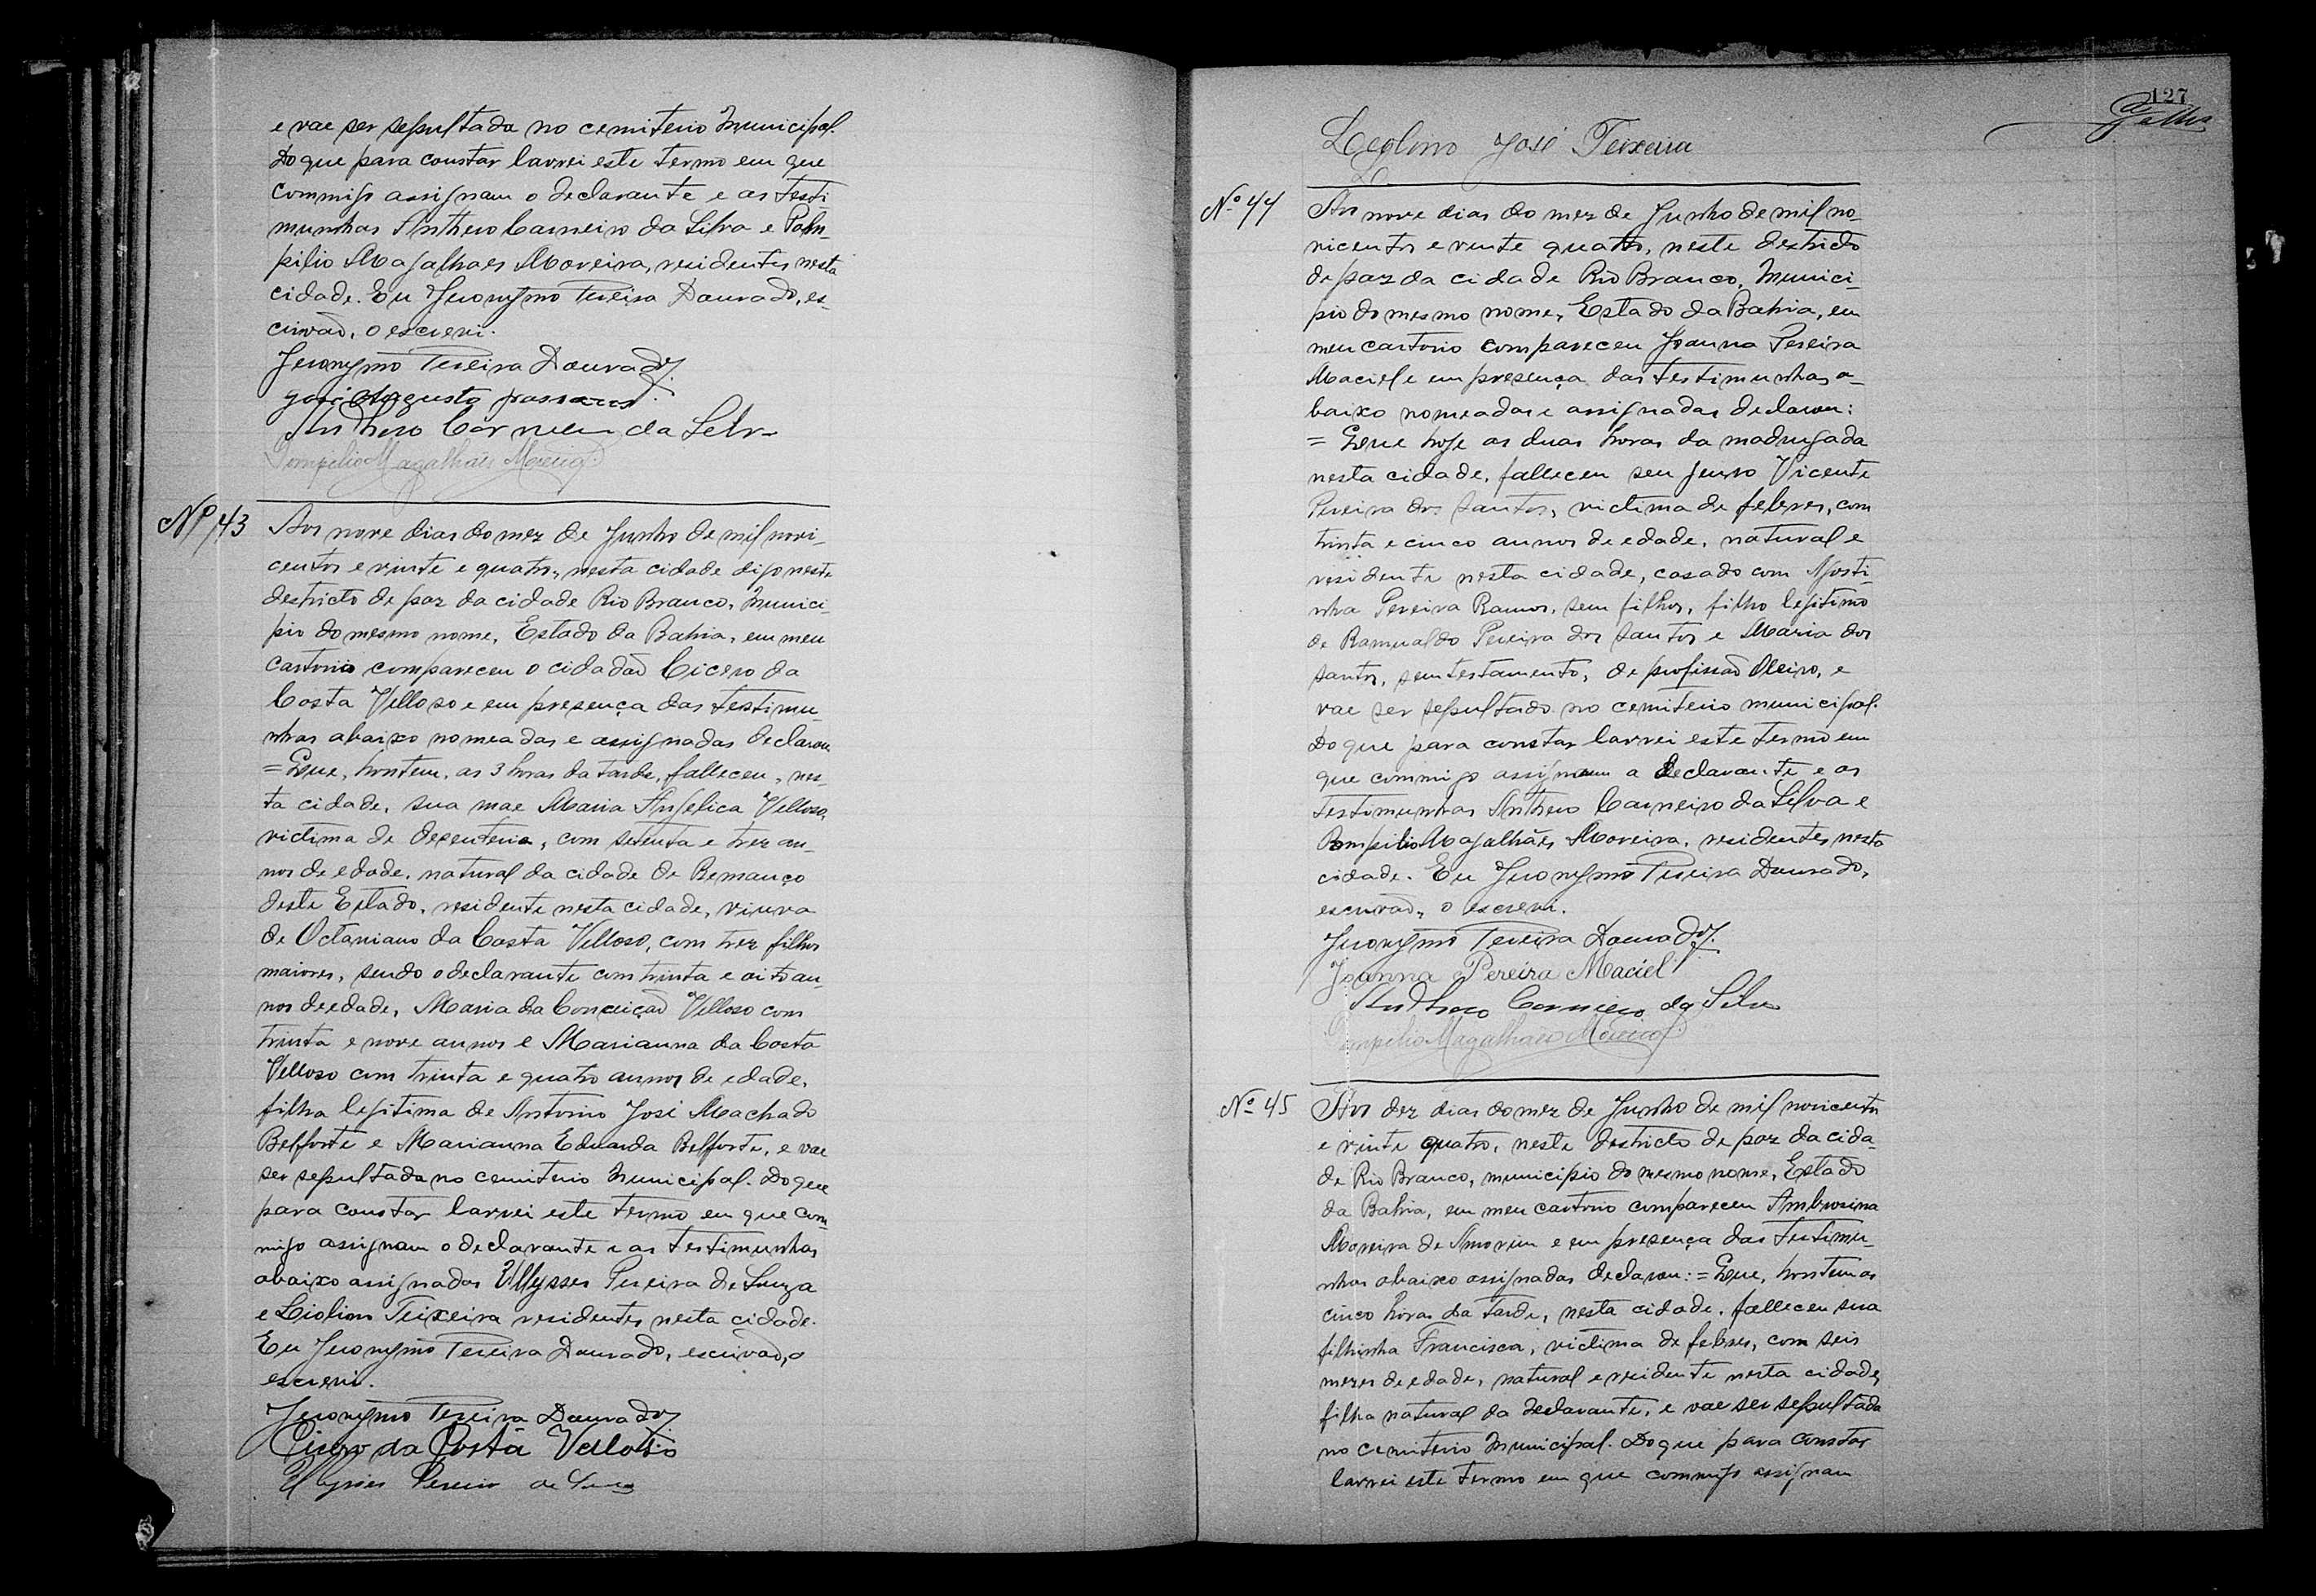 e vae ser sepultada no cemiterio Municipal.
Do que para constar lavrei este termo em que
commigo assignam o declarante e as testi-
munhas Anthero Carneiro da Silva e Pom-
pilio Magalhaes Moreira, residentes nesta
cidade. Eu Jeronymo Pereira Dourado, es-
crivaõ, o escrevi.
Jeronymo Pereira Dourado
José Augusto
Anthero Carneiro da Silva
Pompilio Magalhães Moreira
Nº 43
Aos nove dias do mez de Junho de mil novi-
centos e vinte e quatro, nesta cidade digo neste
destricto de paz da cidade Rio Branco, Munici-
pio do mesmo nome, Estado da Bahia, em meu
cartorio compareceu o cidadaõ Cicero da
Costa Velloso e em presença das testimu-
nhas abaixo nomeadas e assignadas declarou
= Que, hontem, as 3 horas da tarde, falleceu, nes-
ta cidade, sua mae Maria Angelica Velloso,
victima de desenteria, com setenta e trez an-
nos de edade, natural da cidade de Remanço
deste Estado, residente nesta cidade, viuva
de Octaviano da Costa Velloso, com trez filhos
maiores, sendo o declarante com trinta e oito an-
nos de edade, Maria da Conceiçaõ Velloso com
trinta e nove annos e Marianna da Costa
Velloso com trinta e quatro annos de edade,
filha legitima de Antonio José Machado
Belfforte e Marianna Eduarda Belfforte, e vae
ser sepultada no cemiterio Municipal. Do que
para constar lavrei este termo em que com-
migo assignam o declarante e as testimunhas
abaixo assignadas Ullysses Pereira de Souza
e Liolino Teixeira residentes nesta cidade.
Eu Jeronymo Pereira Dourado, escrivaõ, o
escrevi.
Jeronymo Pereira Dourado
Cicero da Costa Velloso
Ulysses Pereira de Souza
127
Leolino José Teixeira
Nº 44
Aos nove dias do mez de Junho de mil no-
vicentos e vinte quatro, neste destricto
de paz da cidade Rio Branco, Munici-
pio do mesmo nome, Estado da Bahia, em
meu cartorio compareceu Joanna Pereira
Maciel e em presença das testimunhas a-
baixo nomeadas e assignadas declarou:
= Que hoje as duas horas da madrugada
nesta cidade, falleceu seu genro Vicente
Pereira dos Santos, victima de febres, com
trinta e cinco annos de edade, natural e
residente nesta cidade, casado com Agosti-
nha Pereira Ramos, sem filhos, filho legitimo
de Ramualdo Pereira dos Santos e Maria dos
Santos, sem testamento, de profissaõ Oleiro, e
vae ser sepultado no cemiterio municipal.
Do que para constar lavrei este termo em
que commigo assignam a declarante e as
testimunhas Anthero Carneiro da Silva e
Pompilio Magalhães Moreira, residentes nesta
cidade. Eu Jeronymo Pereira Dourado,
escrivaõ, o escrevi.
Jeronymo Pereira Dourado
Joanna Pereira Maciel
Anthero Carneiro da Silva
Pompilio Magalhães Moreira
Nº 45
Aos dez dias do mez de Junho de mil novicentos
e vinte quatro, neste destricto de paz da cida-
de Rio Branco, municipio do mesmo nome, Estado
da Bahia, em meu cartorio compareceu Ambrosina
Moreira de Amorim e em presença das testimu-
nhas abaixo assignadas declarou: = Que, hontem as
cinco horas da tarde, nesta cidade, falleceu sua
filhinha Francisca, victima de febres, com seis
mezes de edade, natural e residente nesta cidade,
filha natural da declarante, e vae ser sepultada
no cemiterio Municipal. Do que para constar
lavrei este termo em que commigo assignam